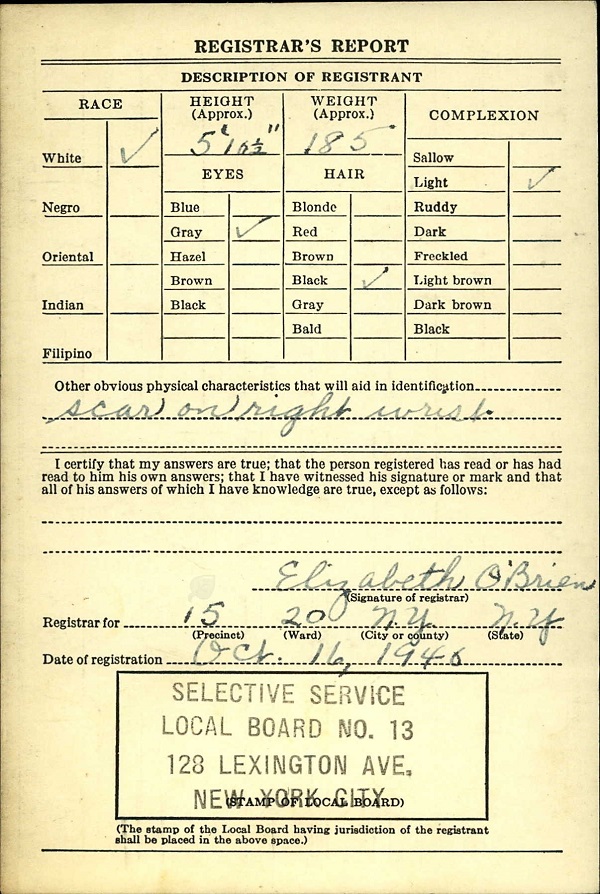 REGISTRAR'S REPORT
DESCRIPTION OF REGISTRANT
RACE
HEIGHT (Approx.)
WEIGHT (Approx.)
COMPLEXION
5' 10½" 185
White ✓
Sallow
EYES HAIR
Light ✓
Negro Blue Blonde Ruddy
Gray ✓ Red Dark
Oriental Hazel Brown Freckled
Brown Black ✓ Light brown
Indian Black Gray Dark brown
Bald Black
Filipino
Other obvious physical characteristics that will aid in identification
scar on right wrist.
I certify that my answers are true; that the person registered has read or has had
read to him his own answers; that I have witnessed his signature or mark and that
all of his answers of which I have knowledge are true, except as follows:
Elizabeth O'Brien
(Signature of registrar)
Registrar for 15 20 N.Y. N.Y
(Precinct) (Ward) (City or county) (State)
Date of registration Oct. 16, 1940
SELECTIVE SERVICE
LOCAL BOARD NO. 13
128 LEXINGTON AVE.
NEW YORK CITY
(STAMP OF LOCAL BOARD)
(The stamp of the Local Board having jurisdiction of the registrant
shall be placed in the above space.)